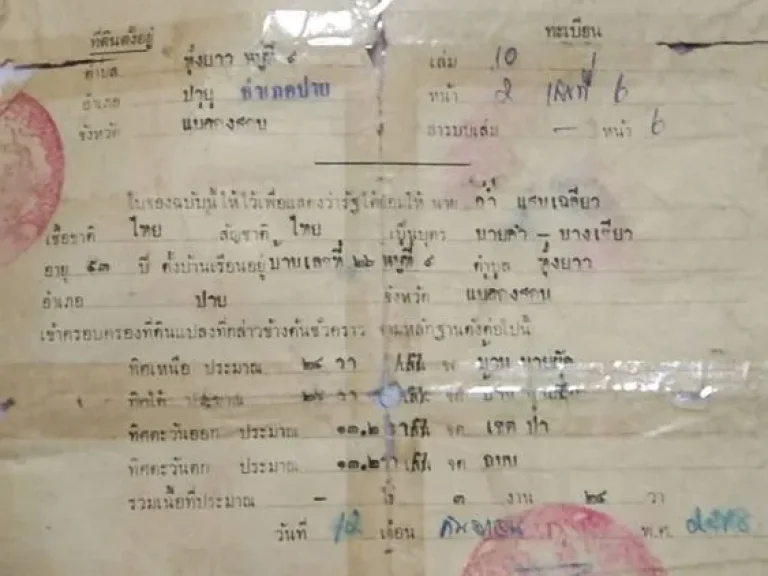 ที่ดินตั้งอยู่ ทะเบียน
ตำบล ทุ่งยาว หมู่ที่ ๙ เล่ม 10
อำเภอ ปาย อำเภอปาย หน้า 2 เลขที่ 6
จังหวัด แม่ฮ่องสอน สารบบเล่ม — หน้า 6
ใบจองฉบับนี้ให้ไว้เพื่อแสดงว่ารัฐได้ยอมให้ นาย คำ แสนเฉลียว
เชื้อชาติ ไทย สัญชาติ ไทย เป็นบุตร นายคำ — นางเขียว
อายุ ๕๓ ปี ตั้งบ้านเรือนอยู่ บ้านเลขที่ ๒๖ หมู่ที่ ๙ ตำบล ทุ่งยาว
อำเภอ ปาย จังหวัด แม่ฮ่องสอน
เข้าครอบครองที่ดินแปลงที่กล่าวข้างต้นชั่วคราว ตามหลักฐานดังต่อไปนี้
ทิศเหนือ ประมาณ ๒๔ วา เส้น จด บ้าน
ทิศใต้ ประมาณ ๒๔ วา เส้น จด บ้าน
ทิศตะวันออก ประมาณ ๑๓.๒ วา เส้น จด เขต ป่า
ทิศตะวันตก ประมาณ ๑๓.๒ วา เส้น จด ถนน
รวมเนื้อที่ประมาณ — ไร่ ๓ งาน ๒๔ วา
วันที่ 12 เดือน กันยายน พ.ศ.